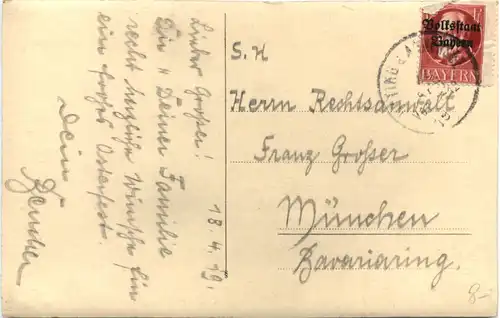 18.4.19.
Lieber Großer!
Dir u Deiner Familie
recht herzliche Wünsche für
ein frohes Osterfest.
Dein
S. H
Herrn Rechtsanwalt
Franz Grosser
München
Bavariaring.
Volksstaat
Bayern
BAYERN
8-